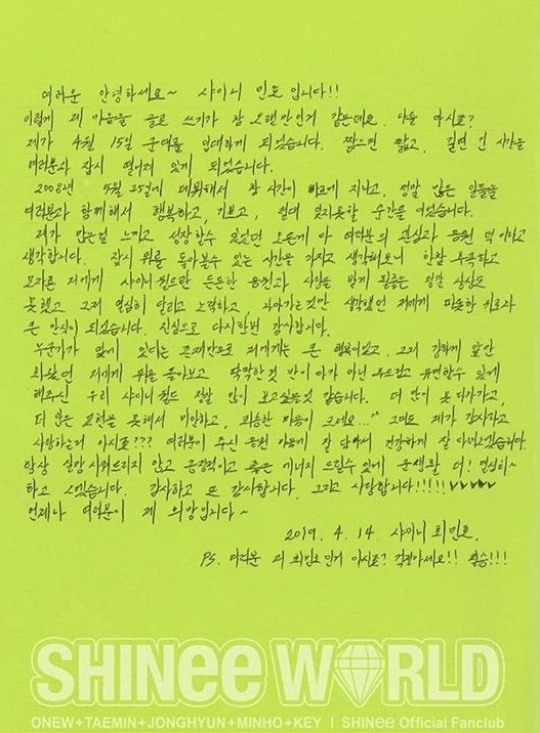 여러분 안녕하세요~ 샤이니 민호입니다!!
이렇게 제 마음을 글로 쓰기가 참 오랜만인거 같은데요. 다들 아시죠?
제가 4월 15일 군대를 입대하게 되었습니다. 짧으면 짧고, 길면 긴 시간을
여러분과 잠시 떨어져 있게 되었습니다.
2008년 5월 25일에 데뷔해서 참 시간이 빠르게 지나고, 정말 많은 일들을
여러분과 함께해서 행복하고, 기쁘고, 절대 잊지못할 순간을 얻었습니다.
제가 많은걸 느끼고 성장할수 있었던 모든게 다 여러분의 관심과 응원 덕이라고
생각합니다. 잠시 뒤를 돌아볼수 있는 시간을 가지고 생각해보니 한참 부족하고
모자른 저에게 샤이니월드란 든든한 응원과 사랑을 받게 될줄은 정말 상상도
못했고 그저 열심히 달리고 노력하고, 나아가는것만 생각했던 저에게 따뜻한 위로와
큰 안식이 되었습니다. 진심으로 다시한번 감사합니다.
누군가가 옆에 있다는 존재만으로 저에게는 큰 행복이였고, 그저 강하게 앞만
봐왔던 저에게 뒤를 돌아보고 딱딱한것 만이 아닌 부드럽고 유연할수 있게
해주신 우리 샤이니월드 정말 많이 보고싶을것 같습니다. 더 많이 못 다가가고,
더 많은 표현을 못해서 미안하고, 죄송한 마음이 크네요...^^ 그래도 제가 감사하고
사랑하는거 아시죠??? 여러분이 주신 응원 마음에 잘 담아서 건강하게 잘 다녀오겠습니다.
항상 실망시켜드리지 않고 긍정적이고 좋은 에너지 드릴수 있게 군생활 더! 열심히~
하고 오겠습니다. 감사하고 또 감사합니다. 그리고 사랑합니다!!!!!! ♥♥♥♥♥
언제나 여러분이 제 희망입니다~
2019. 4. 14. 샤이니 최민호.
PS. 여러분 저 최민호인거 아시죠? 걱정마세요!! 필승!!!
SHINee WORLD
ONEW+TAEMIN+JONGHYUN+MINHO+KEY | SHINee Official Fanclub